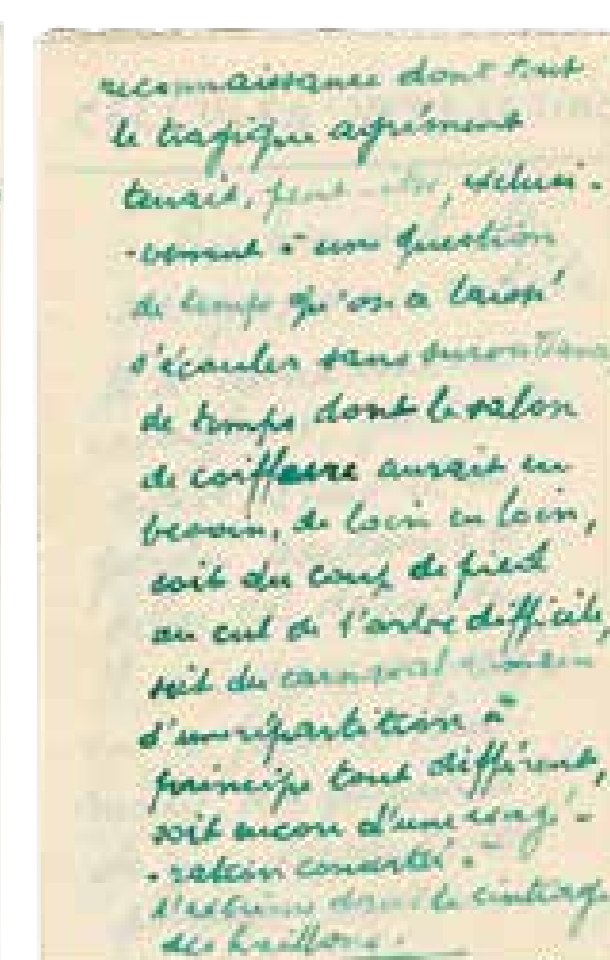 reconnaissance dont tout
le tragique agrément
tenait, peut-être, exclusi-
-vement à une question
de temps qu'on a laissé
s'écouler sans
de temps dont le salon
de coiffure aurait eu
besoin, de loin en loin,
soit du coup de pied
au cul de l'arbre difficile,
soit du carnaval romain
d'une répartition à
principe tout différent,
soit encore d'une exagé-
-ration concertée à
l'extrême dans le cintrage
des haillons.